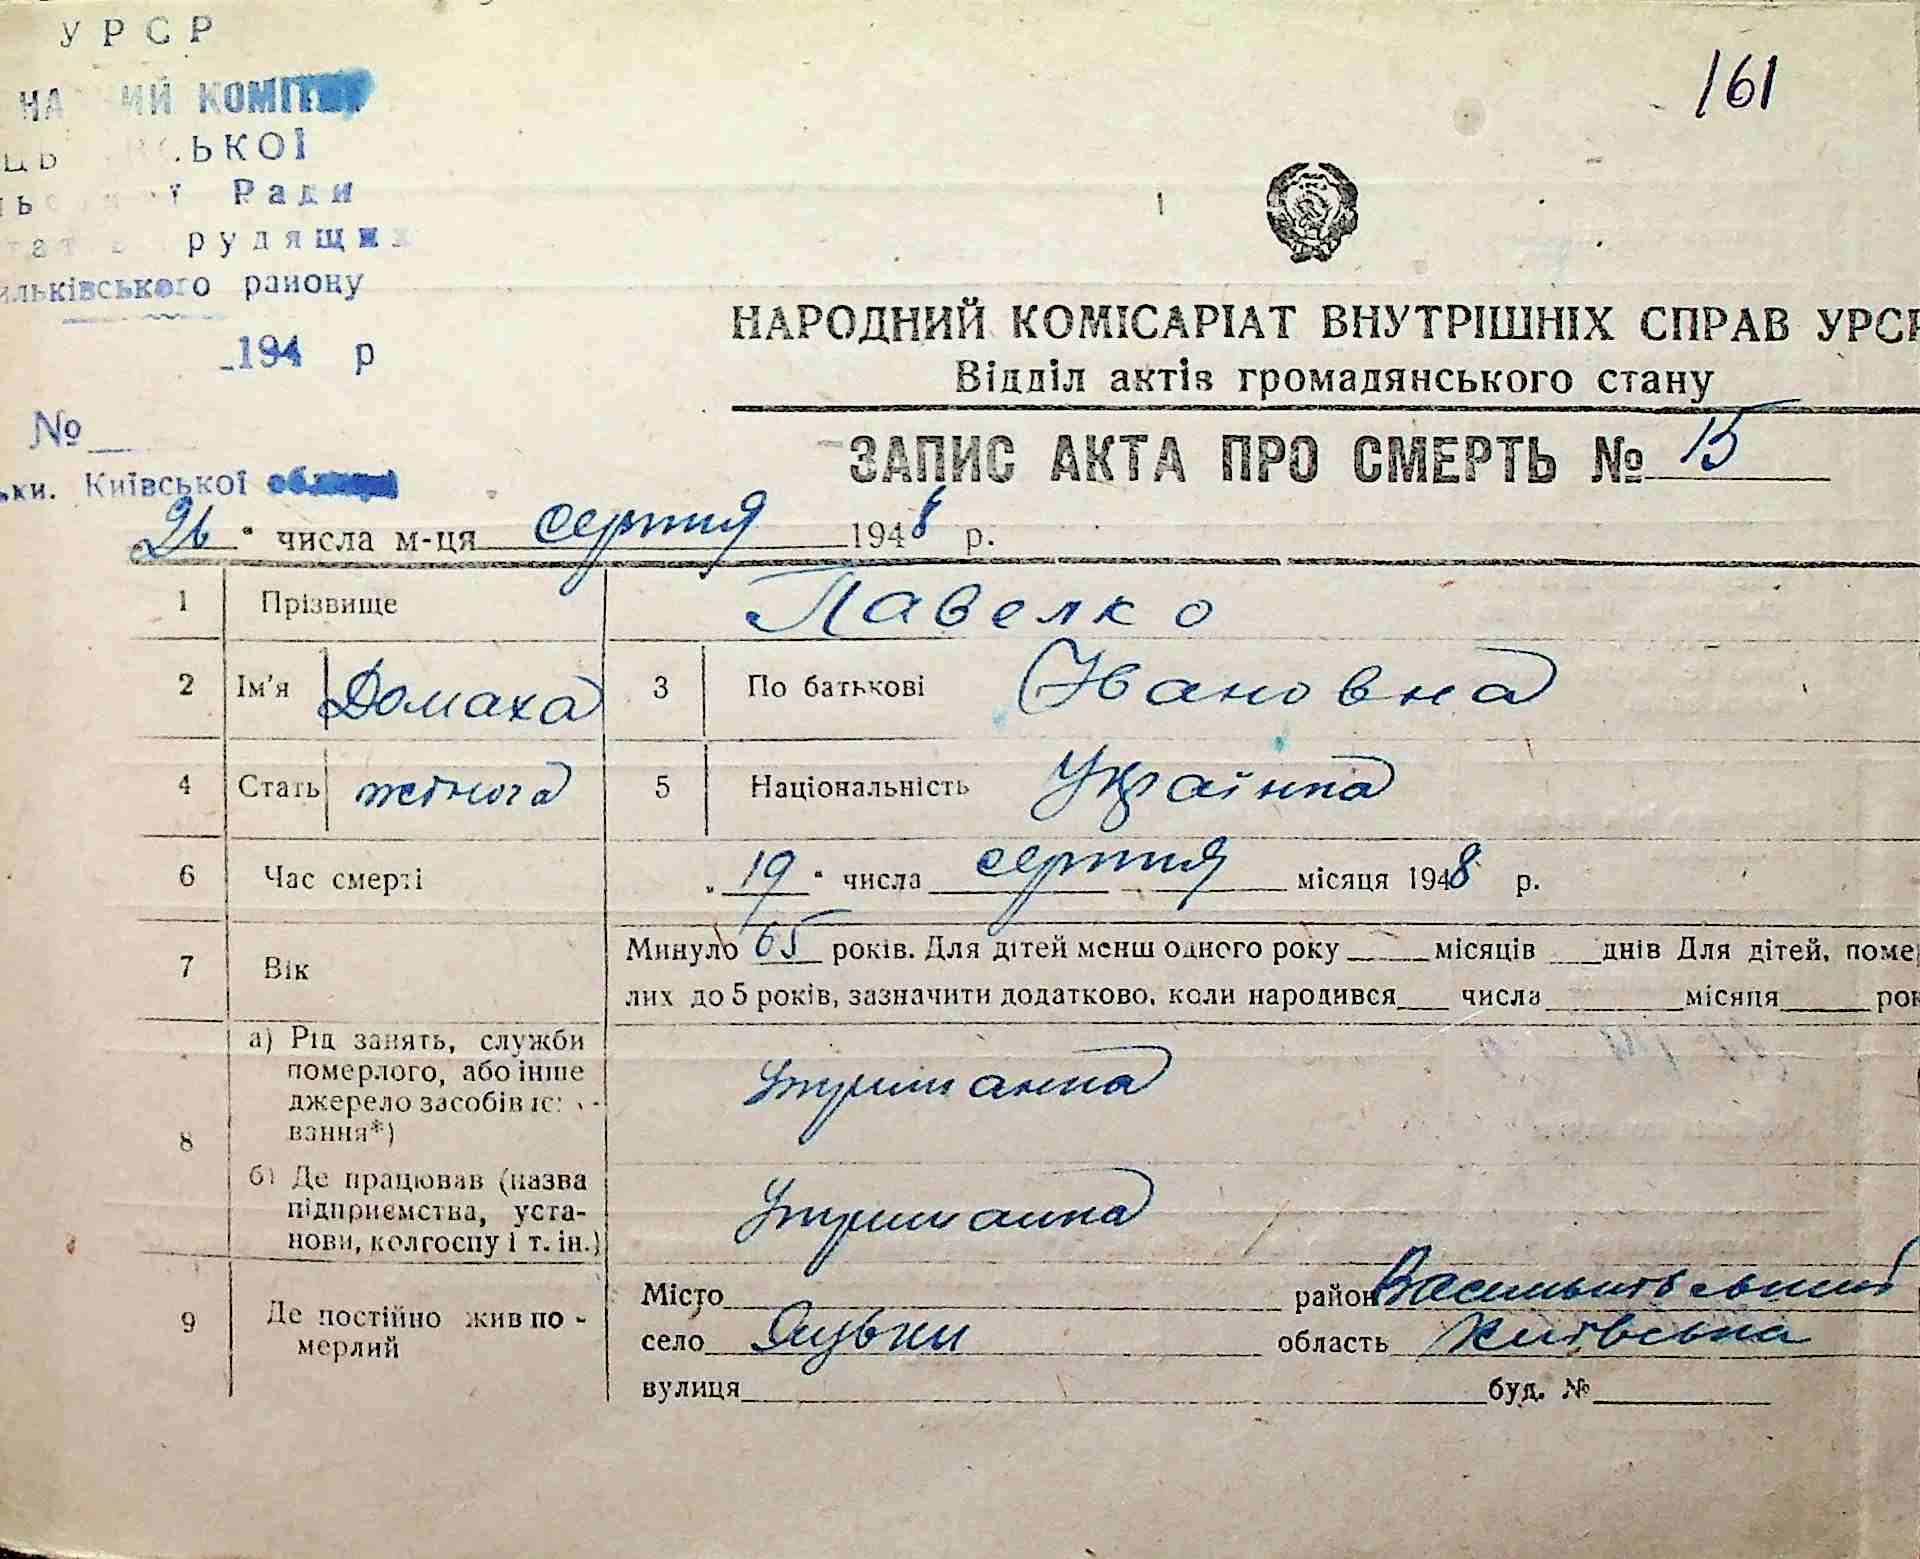 УРСР
161
КОМІТЕТ
ЬКОЇ
Ради
рудящих
ильківського району
194 р
№
ьки. Київської області
НАРОДНИЙ КОМІСАРІАТ ВНУТРІШНІХ СПРАВ УРСР
Відділ актів громадянського стану
ЗАПИС АКТА ПРО СМЕРТЬ № 15
26 " числа м-ця серпня 1948 р.
1 Прізвище Павелко
2 Ім'я Домаха 3 По батькові Івановна
4 Стать жіноча 5 Національність Українка
6 Час смерті „ 19 " числа серпня місяця 1948 р.
7 Вік Минуло 65 років. Для дітей менш одного року місяців днів Для дітей, помер
лих до 5 років, зазначити додатково, коли народився числа місяця рок
8 а) Рід занять, служби
померлого, або інше
джерело засобів існу-
вання*)
утриманка
б) Де працював (назва
підприємства, уста-
нови, колгоспу і т. ін.)
утриманка
9 Де постійно жив по-
мерлий
Місто район Васильківський
село Яцьки область Київська
вулиця буд. №